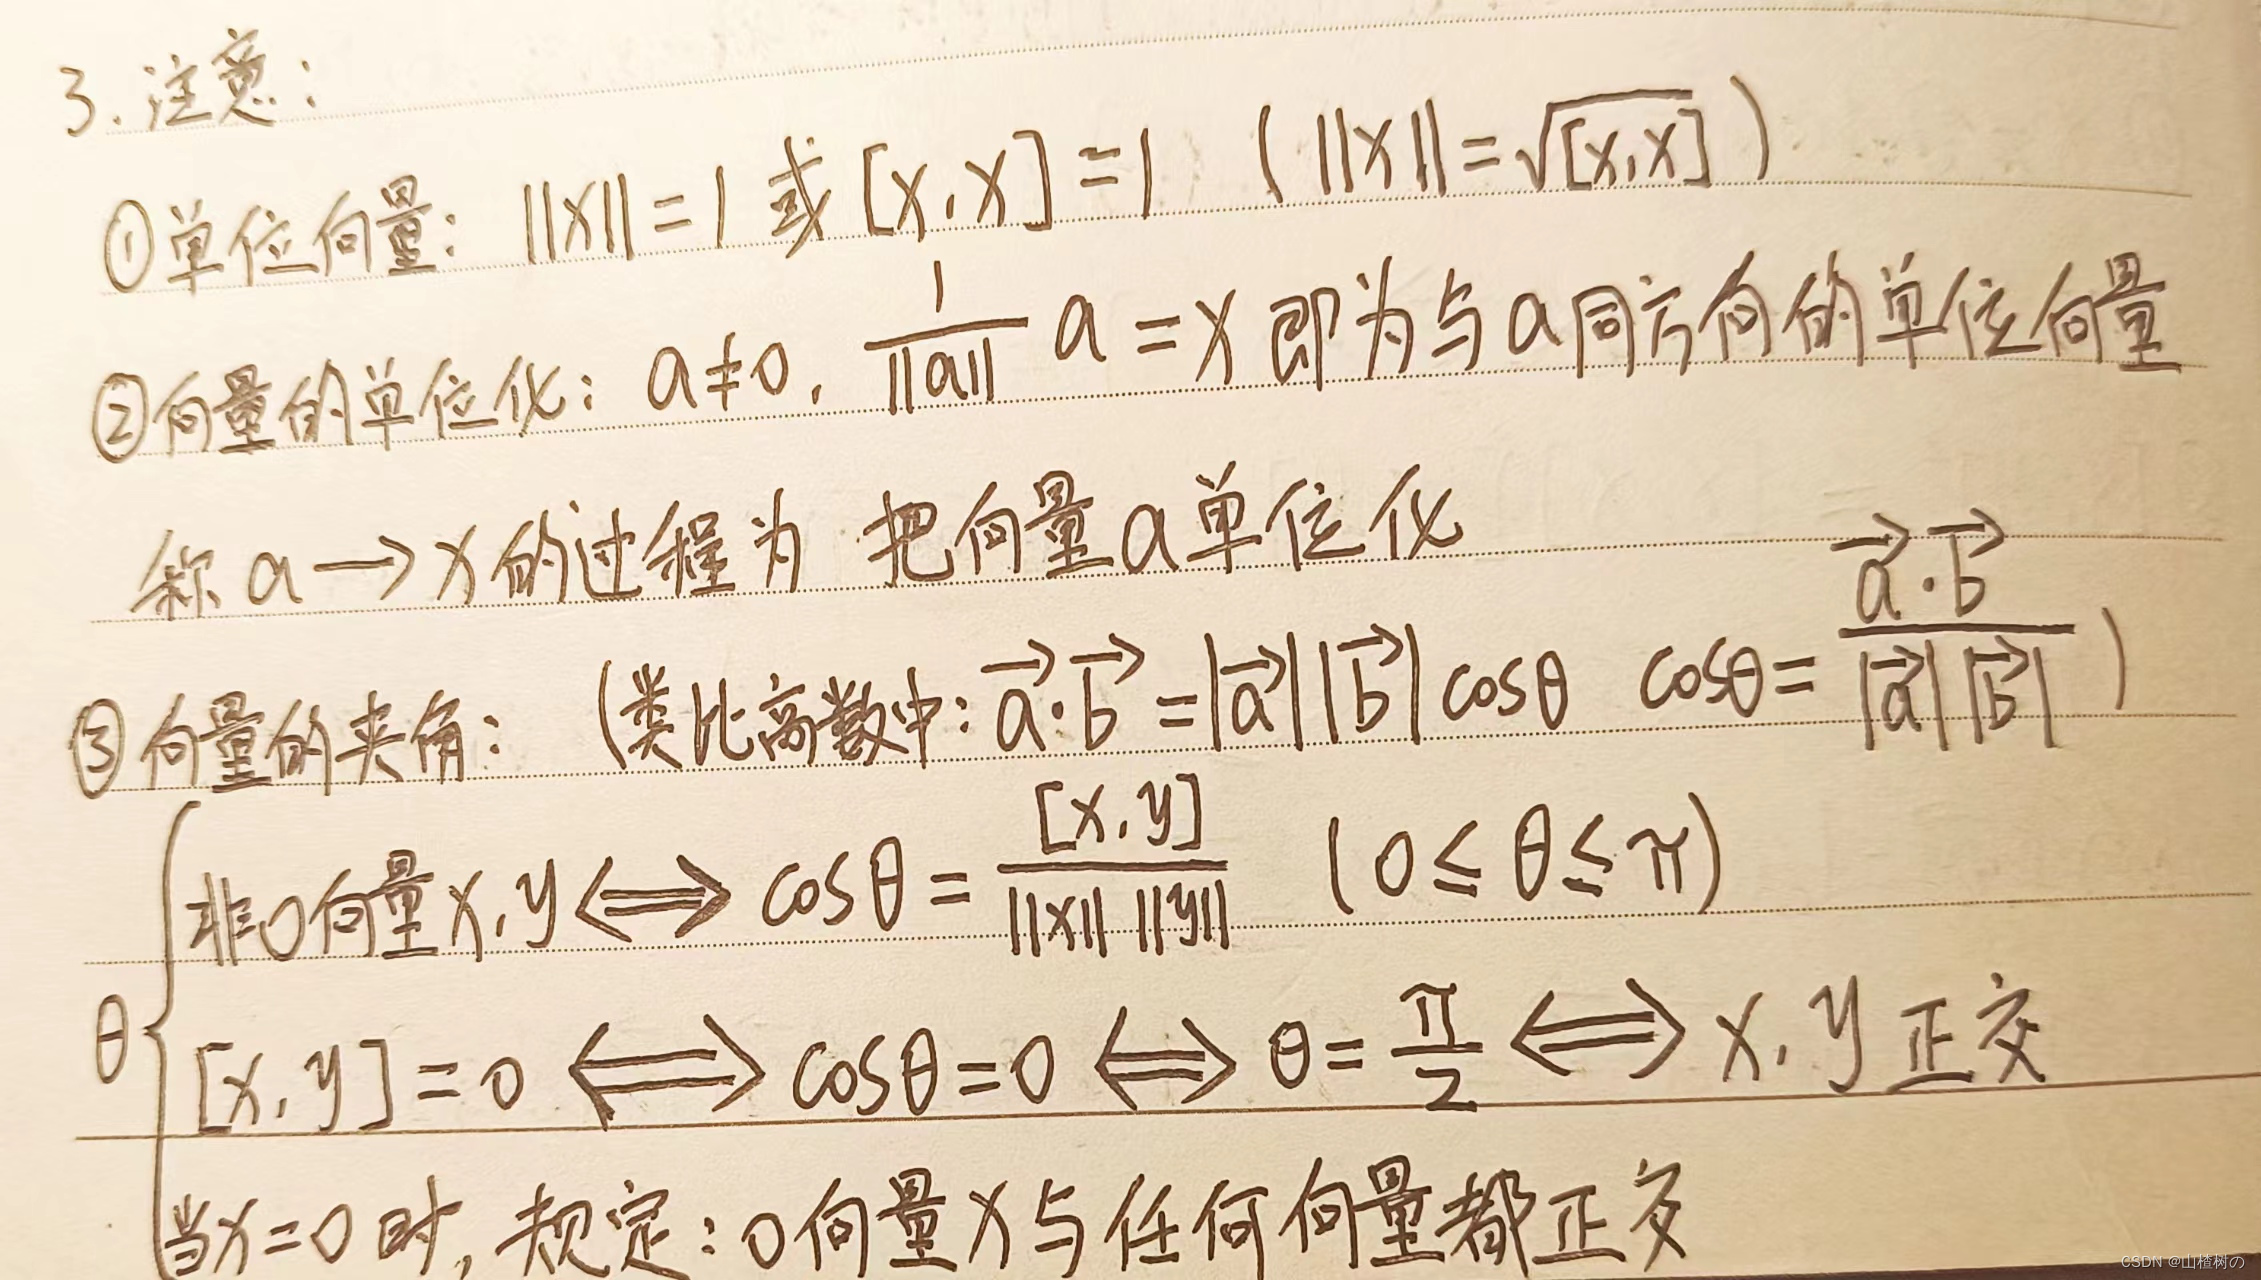 3. 注意：
①单位向量： ||x||=1 或 [x,x]=1 (||x||=√[x,x])
②向量的单位化： a≠0, 1/||a|| a = x 即为与a同方向的单位向量
称 a→x 的过程为 把向量a单位化
③向量的夹角： (类比离数中: a⃗·b⃗ = |a⃗| |b⃗| cosθ cosθ = a⃗·b⃗/|a⃗| |b⃗|)
非0向量x,y ⟺ cosθ = [x,y]/||x|| ||y|| (0≤θ≤π)
θ { [x,y]=0 ⟺ cosθ=0 ⟺ θ=π/2 ⟺ x,y 正交
当x=0时, 规定: 0向量x与任何向量都正交
CSDN @山楂树の